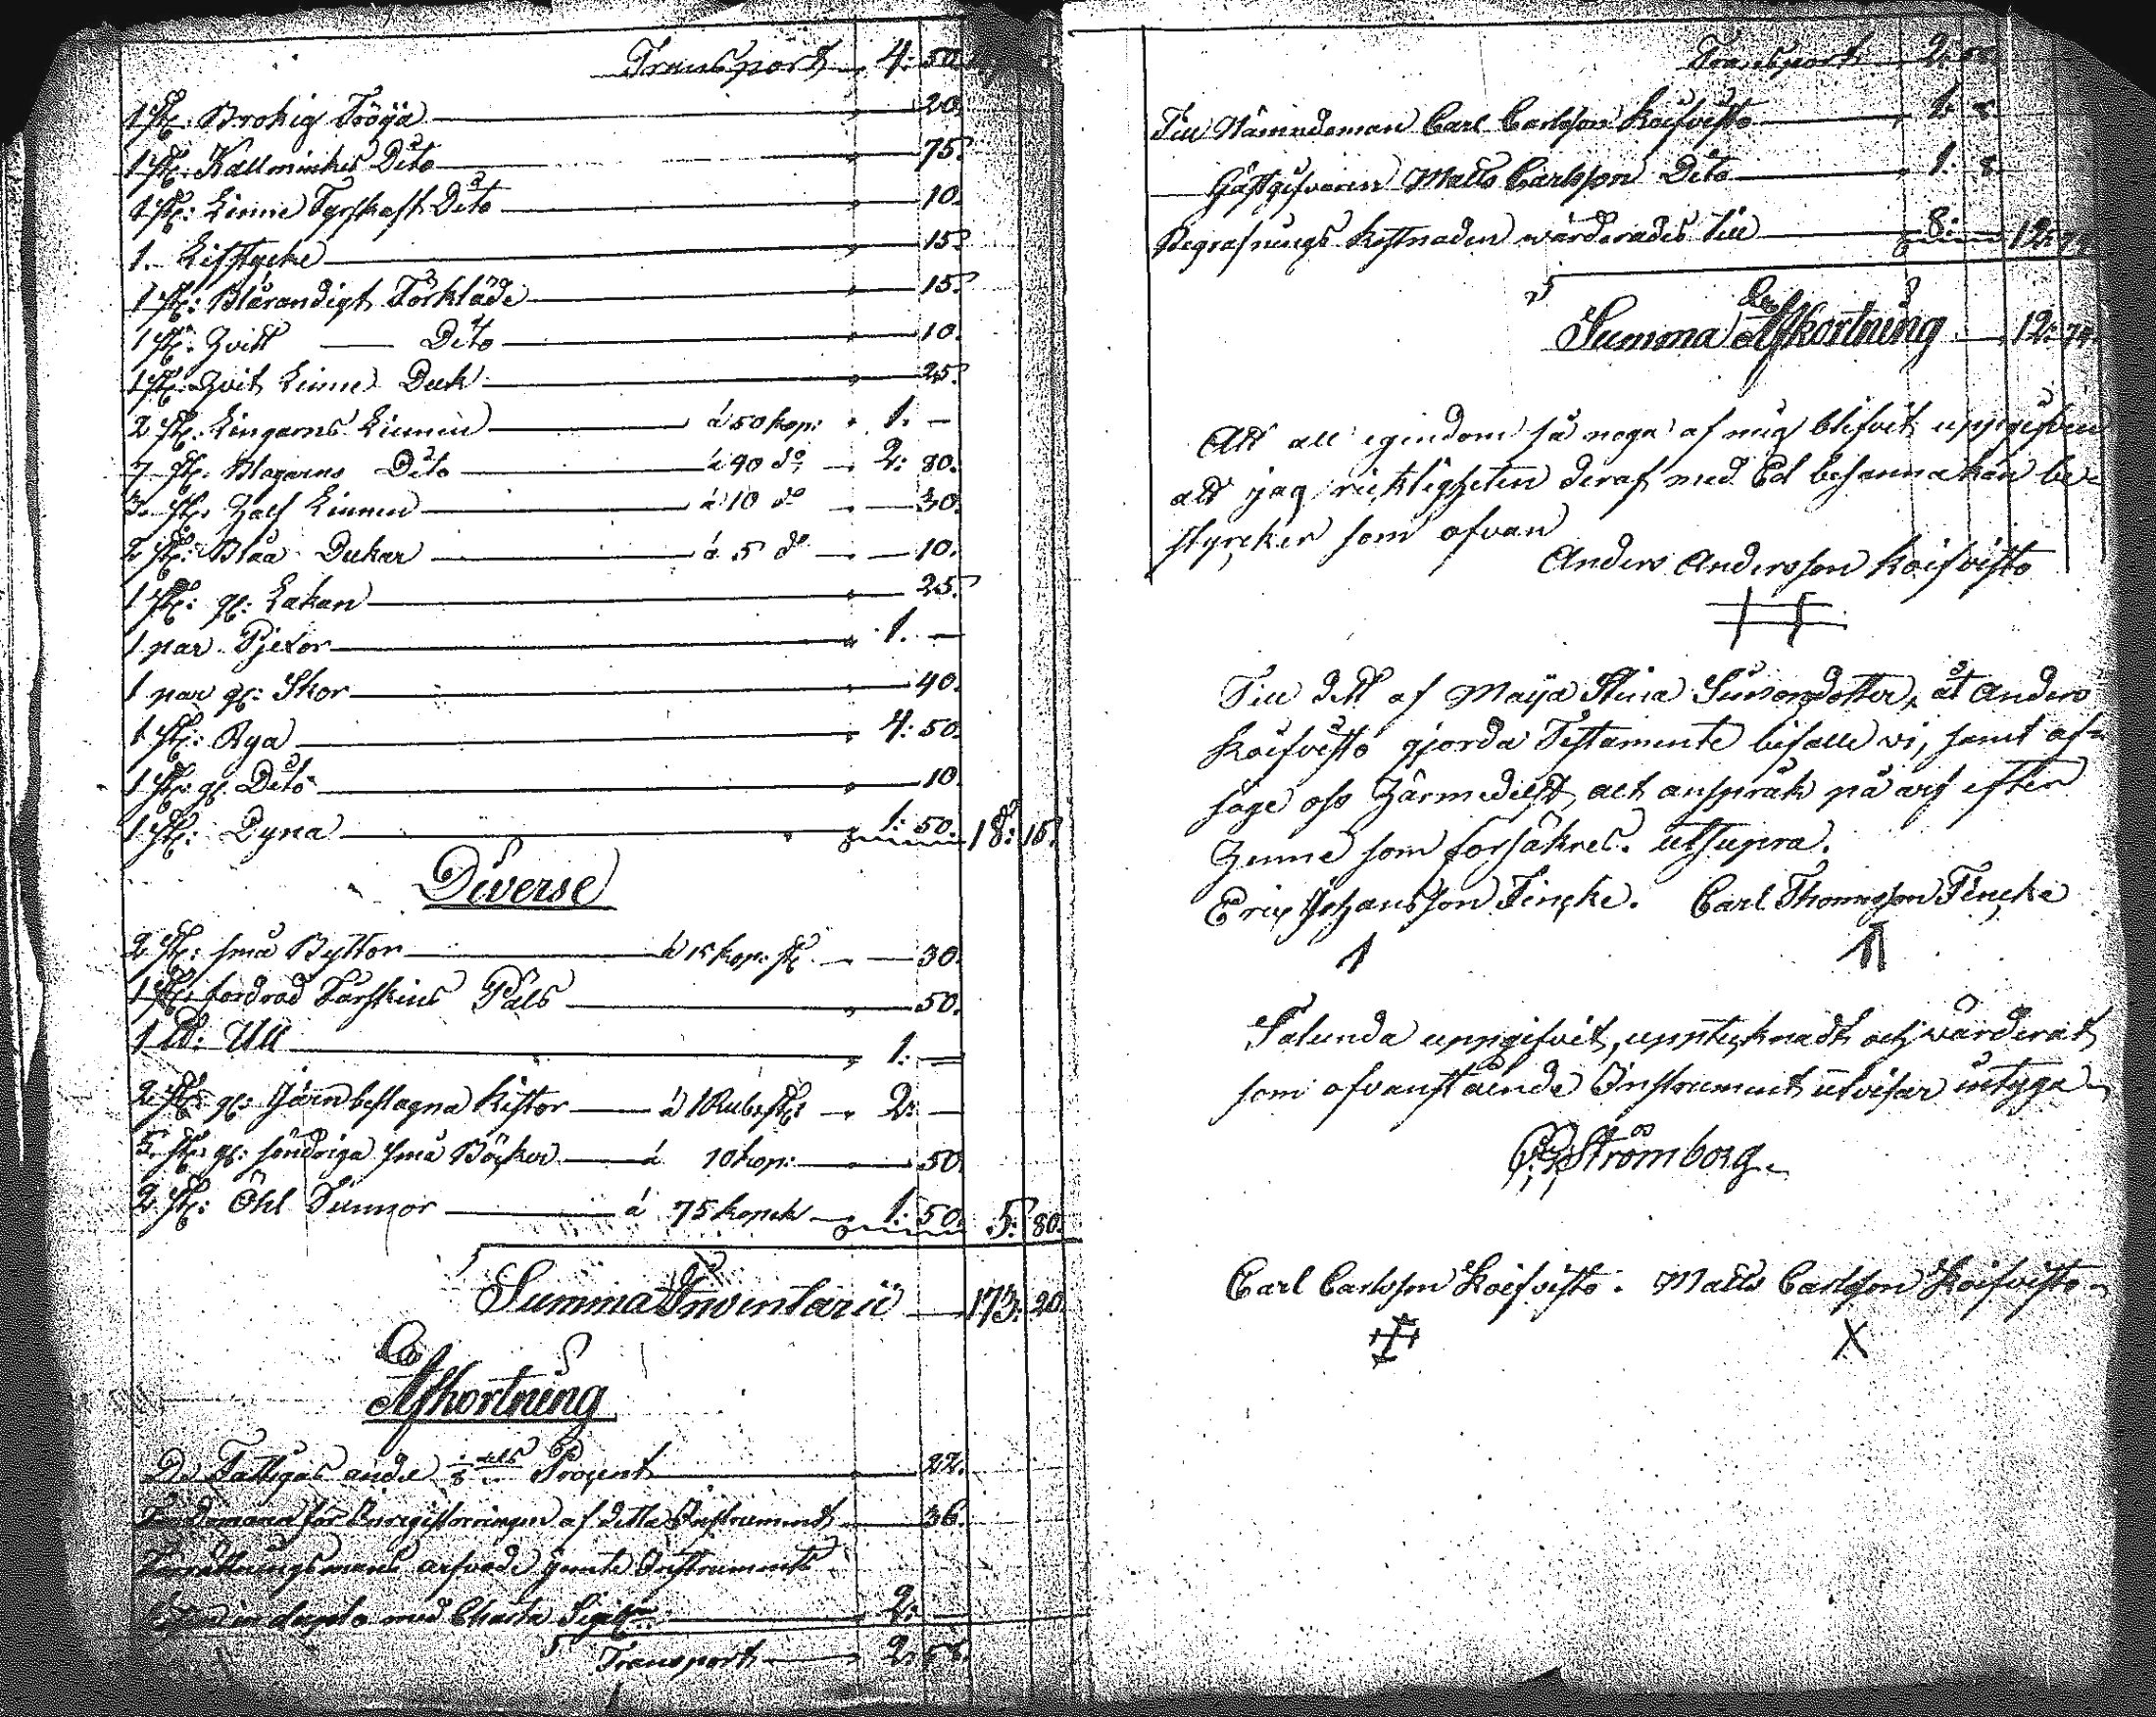 Transport 4: 50.
1 st: Brokig Tröÿa 20.
1 st: Kallminkis Dito 75.
1 st: Linne Tyskaft Dito 10.
1. Lifstycke 15.
1 st: Blårandigt Förkläde 15.
1 st: Hvitt Dito 10.
1 st: Hvit Linne Duk 25.
2 st: Lingarns Linnen à 50 kop: 1. —
7 st: Blagarns Dito à 40 do 2: 80.
3 st: Half Linnen à 10 do 30.
2 st: Blåa Dukar à 5 do 10.
1 st: gl: Lakan 25.
1 par Pjexor 1. —
1 par gl: Skor 40.
1 st: Rya 4: 50.
1 st: gl. Dito 10.
1 st: Dyna 1: 50. 18: 15.
Diverse
2 st: små Byttor à 15 kop: st. 30.
1 st: fordrad Fårskins Päls 50.
1 Ld: Ull 1: —
2 st: gl: Järnbeslagna Kistor à 1 Rub: st: 2: —
5 st: gl: söndriga små Böcker à 10 kop: 50
2 st: Öhl Tunnor à 75 kopek 1: 50. 5: 80.
Summa Inventarii 173: 20.
Afkortning
De Fattigas andel 1/8 dels Procent 22.
för Inregistreringen af detta Instrument 36.
Förrättningsmans arfvode jemte Instrumentets
in duplo med Charta Sigill: 2: —
Transport 2: 58.
Transport 2: 58
Till Nämndeman Carl Carlsson Koifvisto 1: 8.
Gästgifvaren Matts Carlsson Dito 1: 8.
Begrafnings kostnaden värderades till 8: 12: 74
Summa Afkortning 12: 74.
Att all egendom så noga af mig blifvit uppgifven
att jag ricktigheten deraf med Ed besanna kan be-
styrcker som ofvan
Anders Andersson Koifvisto
Till dett af Maÿa Stina Simonsdotter, åt Anders
Koifvisto gjorda Testamente bifalle vi, samt af-
säge oss härmedelst alt anspråk på arf efter
henne som försäkres. utsupra.
Eric Johansson Fincke. Carl Thomsson Fincke
Salunda uppgifvit, upptecknadt och värderat
som ofvanstående Instrument utvisar intyga
Strömborg.
Carl Carlsson Koifvisto. Matts Carlsson Koifvisto
X